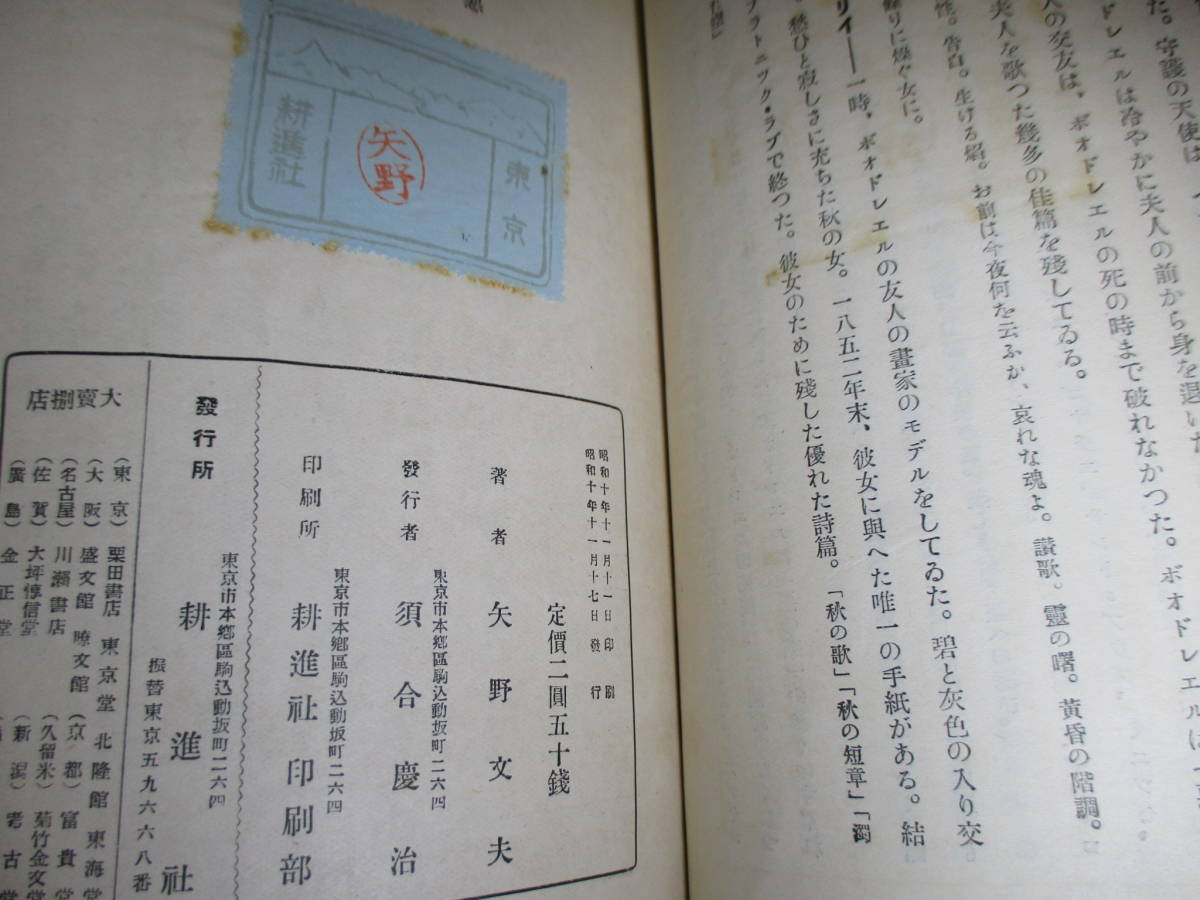 た。守護の天使は
ドレエルは冷やかに夫人の前から身を退いた
人の交友は、ボオドレエルの死の時まで破れなかつた。ボオドレエルは
夫人を歌つた幾多の佳篇を殘してゐる。
性。告白。生ける焰。お前は今夜何を云ふか、哀れな魂よ。讃歌。靈の曙。黄昏の階調。
りに燥ぐ女に。
リイ――一時、ボオドレエルの友人の畫家のモデルをしてゐた。碧と灰色の入り交
愁ひと寂しさに充ちた秋の女。一八五二年末、彼女に與へた唯一の手紙がある。結
プラトニック・ラブで終つた。彼女のために殘した優れた詩篇。「秋の歌」「秋の短章」「濁
東京
矢野
耕進社
昭和十年十一月十一日印刷
昭和十年十一月十七日發行
定價二圓五十錢
著者 矢野文夫
東京市本鄉區駒込動坂町二六四
發行者 須合慶治
東京市本鄉區駒込動坂町二六四
印刷所 耕進社印刷部
東京市本鄉區駒込動坂町二六四
發行所 耕進社
振替東京五九六六八番
大賣捌店
(東京) 栗田書店 東京堂 北隆館 東海堂
(大阪) 盛文館 曉文館 (京都) 富貴堂
(名古屋) 川瀨書店 (久留米) 菊竹金文堂
(佐賀) 大坪惇信堂 (新潟) 考古堂
(廣島) 金正堂